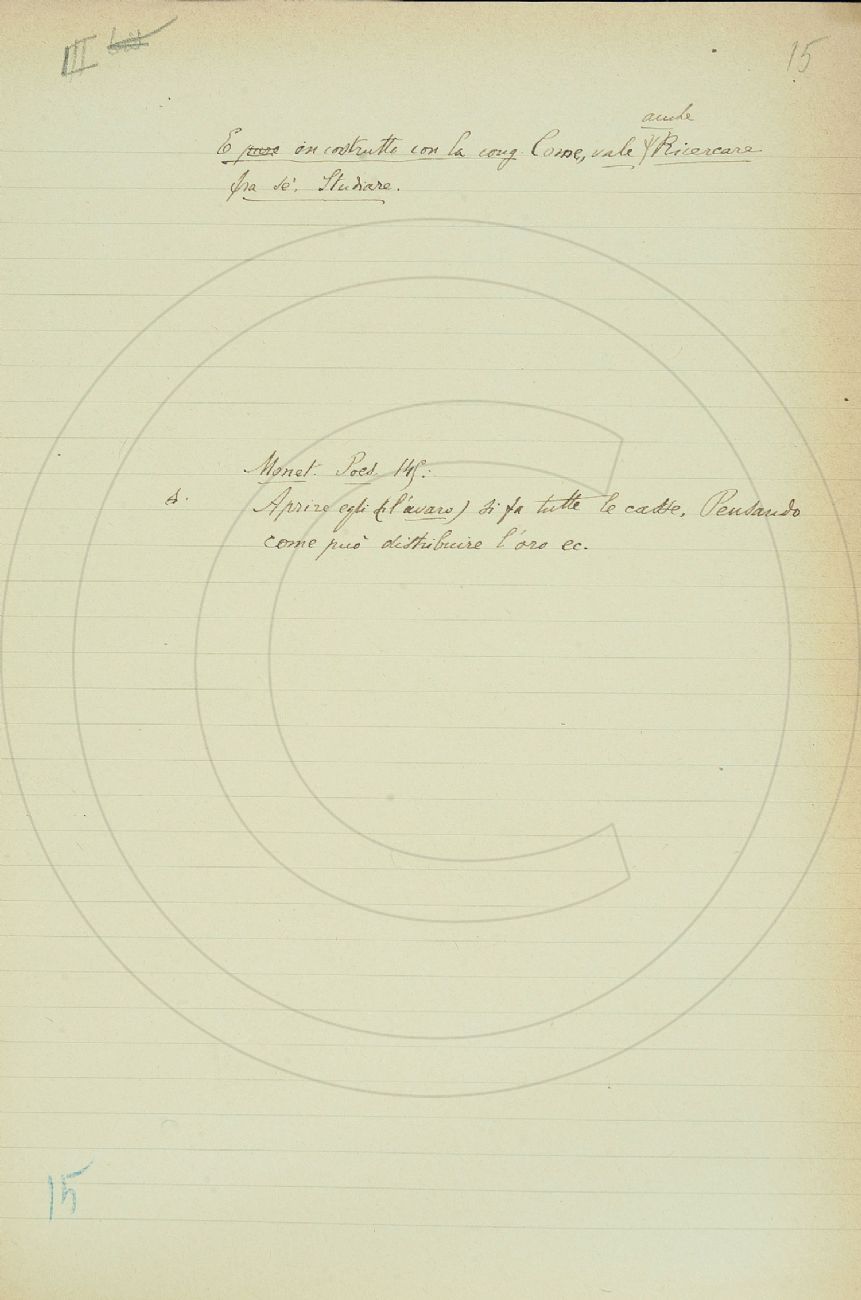 III bis
15
anche
E pure in costrutto con la cong. Come, vale Ricercare
fra sè, Studiare.
Monet. Poes. 145:
s. Aprire egli (l'avaro) si fa tutte le casse, Pensando
come può distribuire l'oro ec.
15